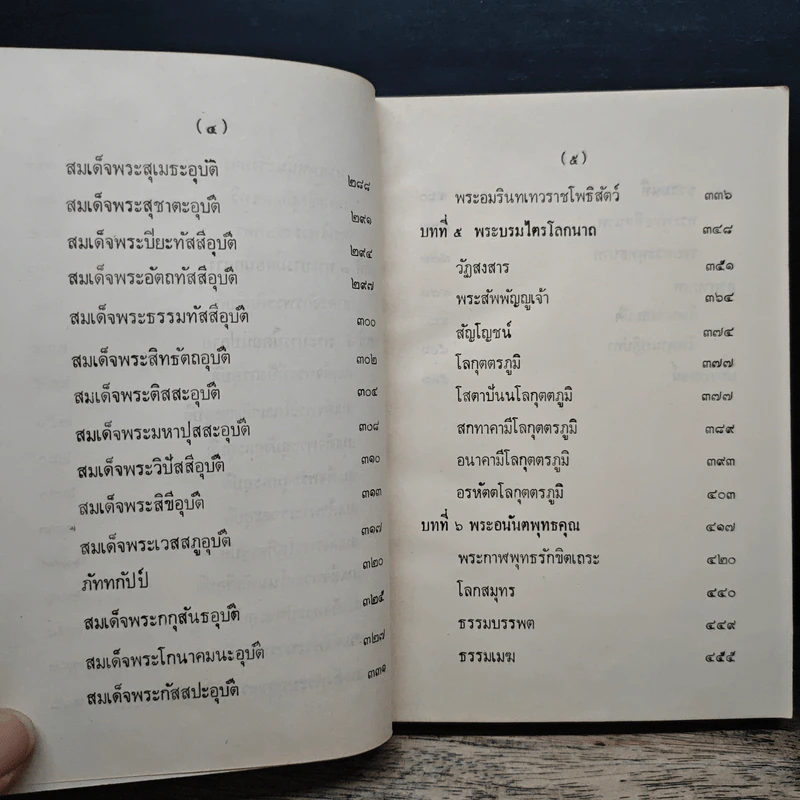 (๔)
สมเด็จพระสุเมธะอุบัติ ๒๘๘
สมเด็จพระสุชาตะอุบัติ ๒๙๑
สมเด็จพระปิยะทัสสีอุบัติ ๒๙๔
สมเด็จพระอัตถทัสสีอุบัติ ๒๙๗
สมเด็จพระธรรมทัสสีอุบัติ ๓๐๐
สมเด็จพระสิทธัตถอุบัติ ๓๐๒
สมเด็จพระติสสะอุบัติ ๓๐๔
สมเด็จพระมหาปุสสะอุบัติ ๓๐๘
สมเด็จพระวิปัสสีอุบัติ ๓๑๐
สมเด็จพระสิขีอุบัติ ๓๑๓
สมเด็จพระเวสสภูอุบัติ ๓๑๗
ภัททกัปป์ ๓๒๐
สมเด็จพระกกุสันธอุบัติ ๓๒๕
สมเด็จพระโกนาคมนะอุบัติ ๓๒๗
สมเด็จพระกัสสปะอุบัติ ๓๓๑
(๕)
พระอมรินทเทวราชโพธิสัตว์ ๓๓๖
บทที่ ๕ พระบรมไตรโลกนาถ ๓๔๘
วัฏสงสาร ๓๕๑
พระสัพพัญญูเจ้า ๓๖๔
สัญโญชน์ ๓๗๔
โลกุตตรภูมิ ๓๗๗
โสตาปันนโลกุตตภูมิ ๓๗๗
สกทาคามีโลกุตตรภูมิ ๓๘๙
อนาคามีโลกุตตรภูมิ ๓๙๓
อรหัตตโลกุตตรภูมิ ๔๐๓
บทที่ ๖ พระอนันตพุทธคุณ ๔๑๗
พระกาฬพุทธรักขิตเถระ ๔๒๐
โลกสมุทร ๔๔๐
ธรรมบรรพต ๔๔๙
ธรรมเมฆ ๔๕๕